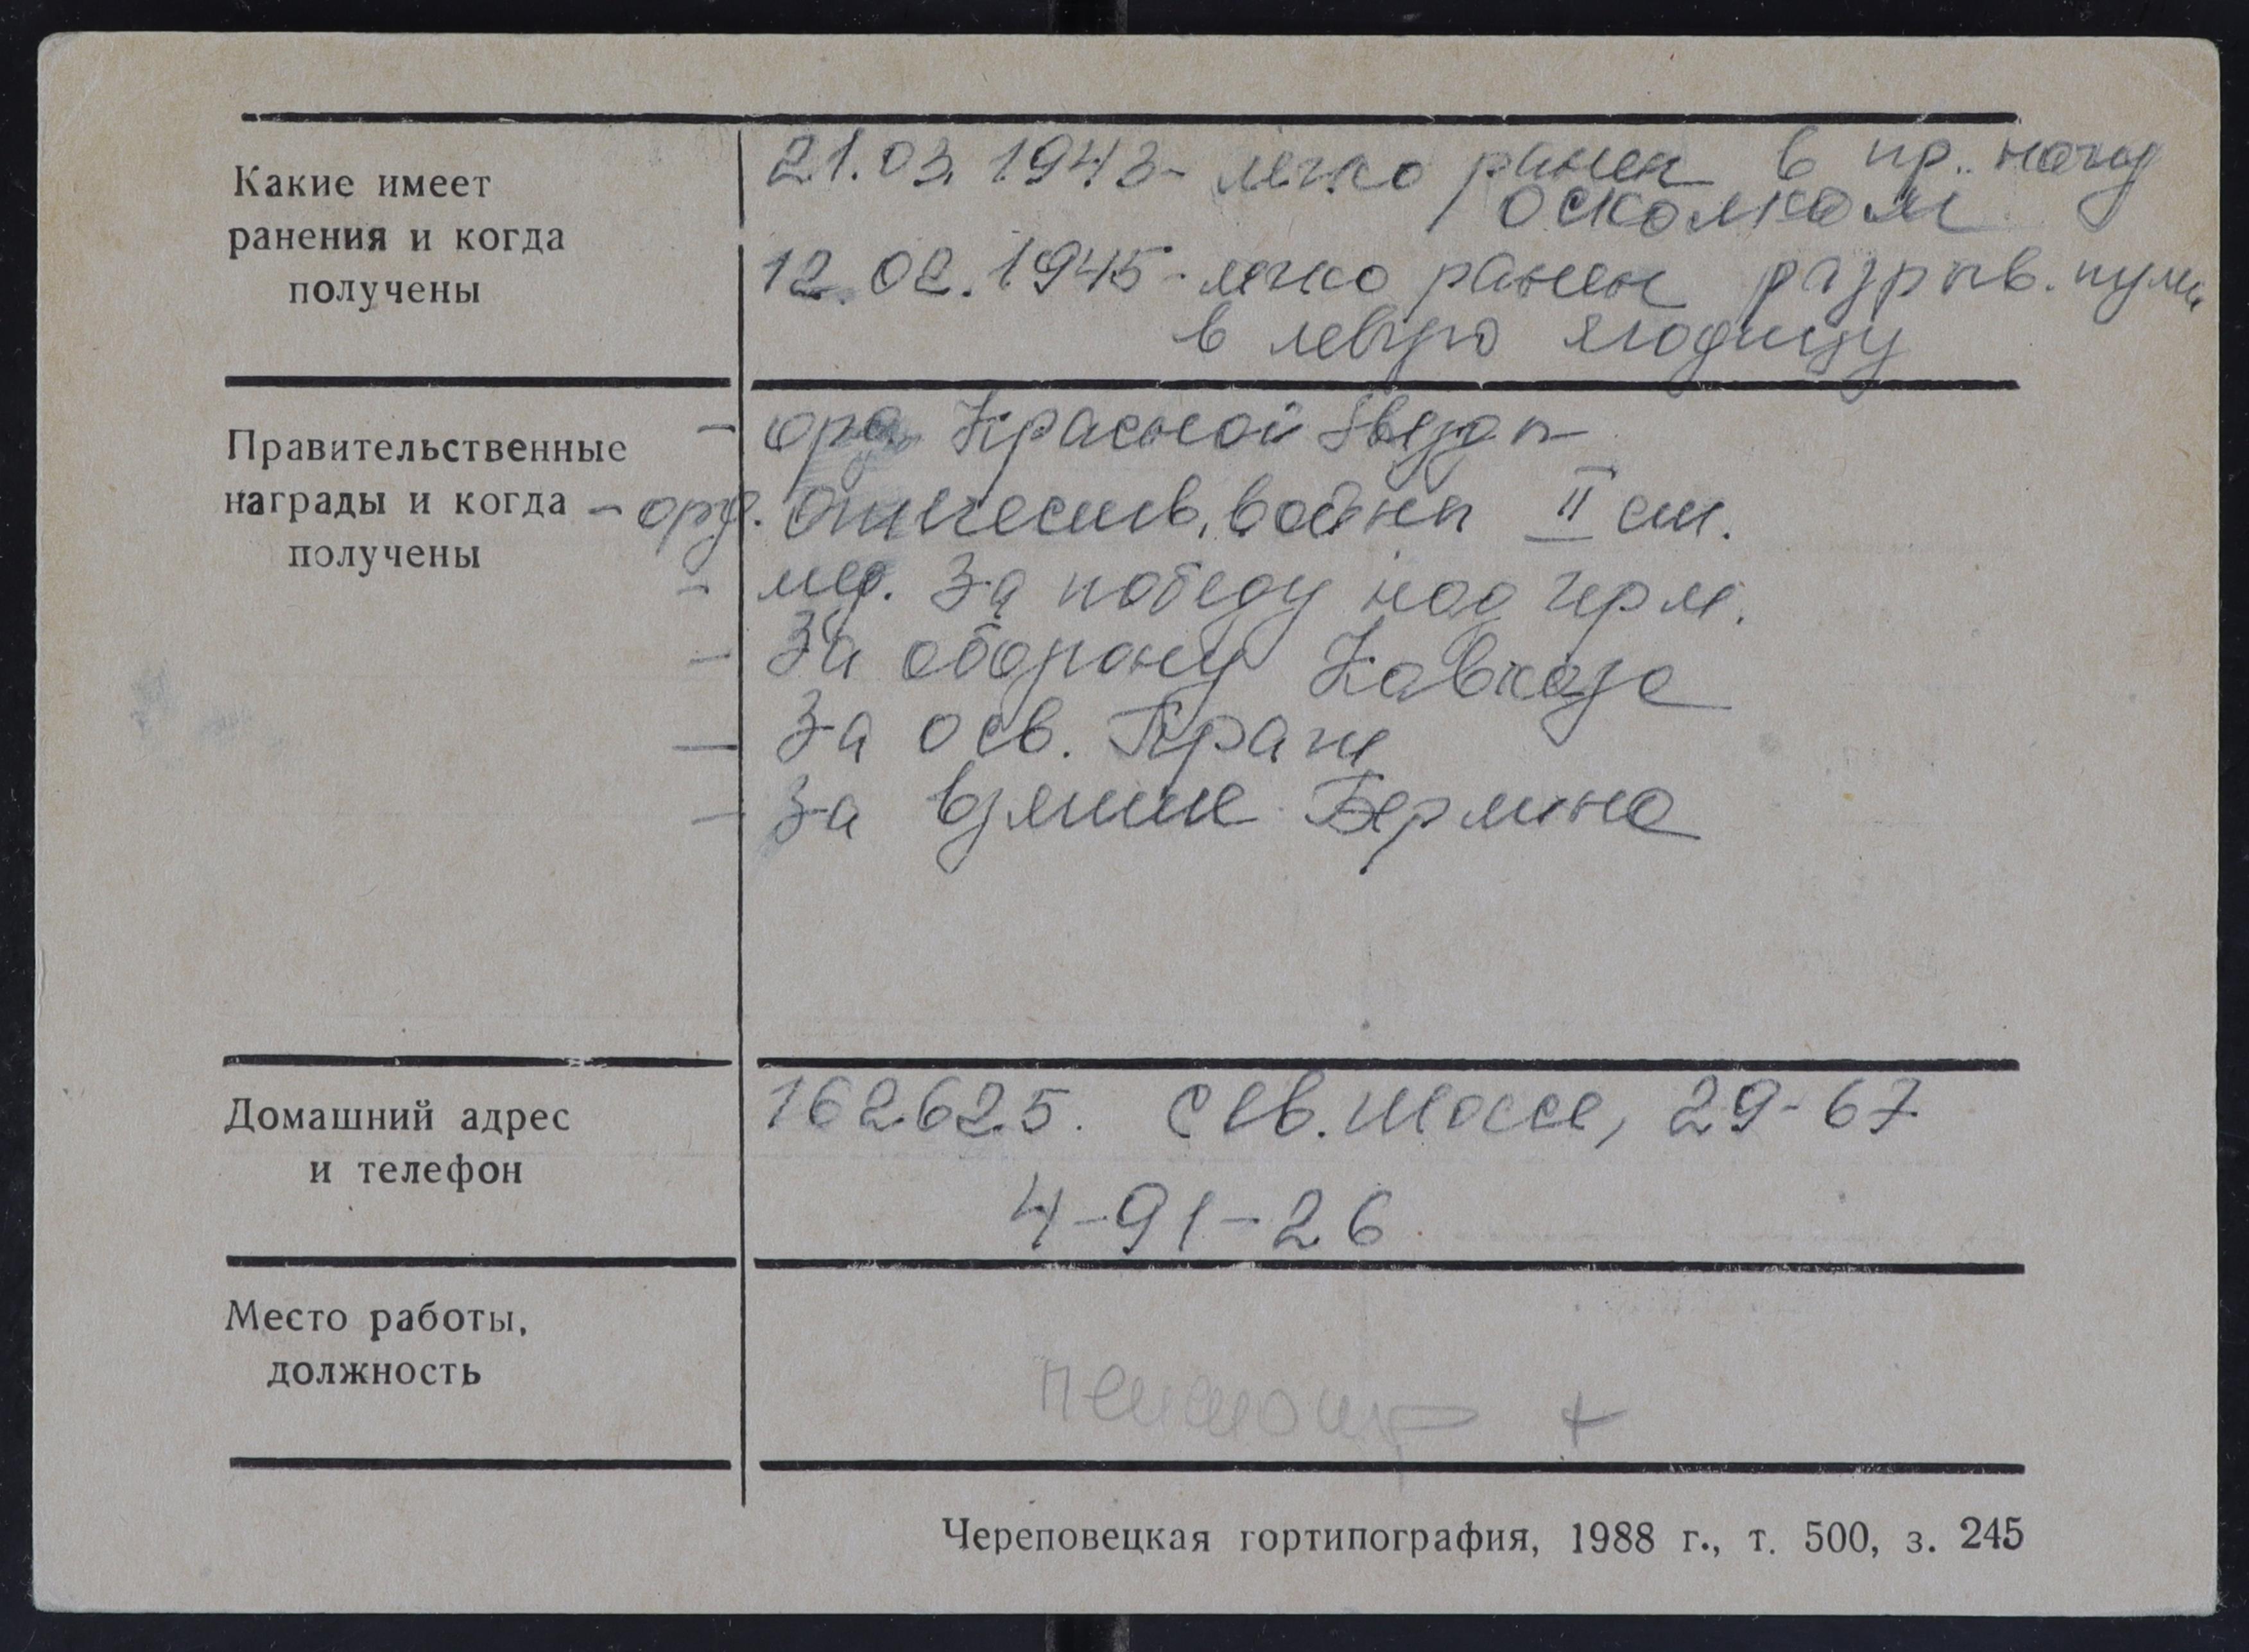 Какие имеет
ранения и когда
получены
21.03.1943- легко ранен в пр. ногу
осколком
12.02.1945- легко ранен разрыв. пулей
в левую ягодицу
Правительственные
награды и когда
получены
- орд. Красной Звезды
- орд. Отечеств. войны II ст.
- мед. За победу над Герм.
- За оборону Кавказа
- За осв. Праги
- За взятие Берлина
Домашний адрес
и телефон
162625. Сев. шоссе, 29-67
4-91-26
Место работы,
должность
пенсионер +
Череповецкая гортипография, 1988 г., т. 500, з. 245